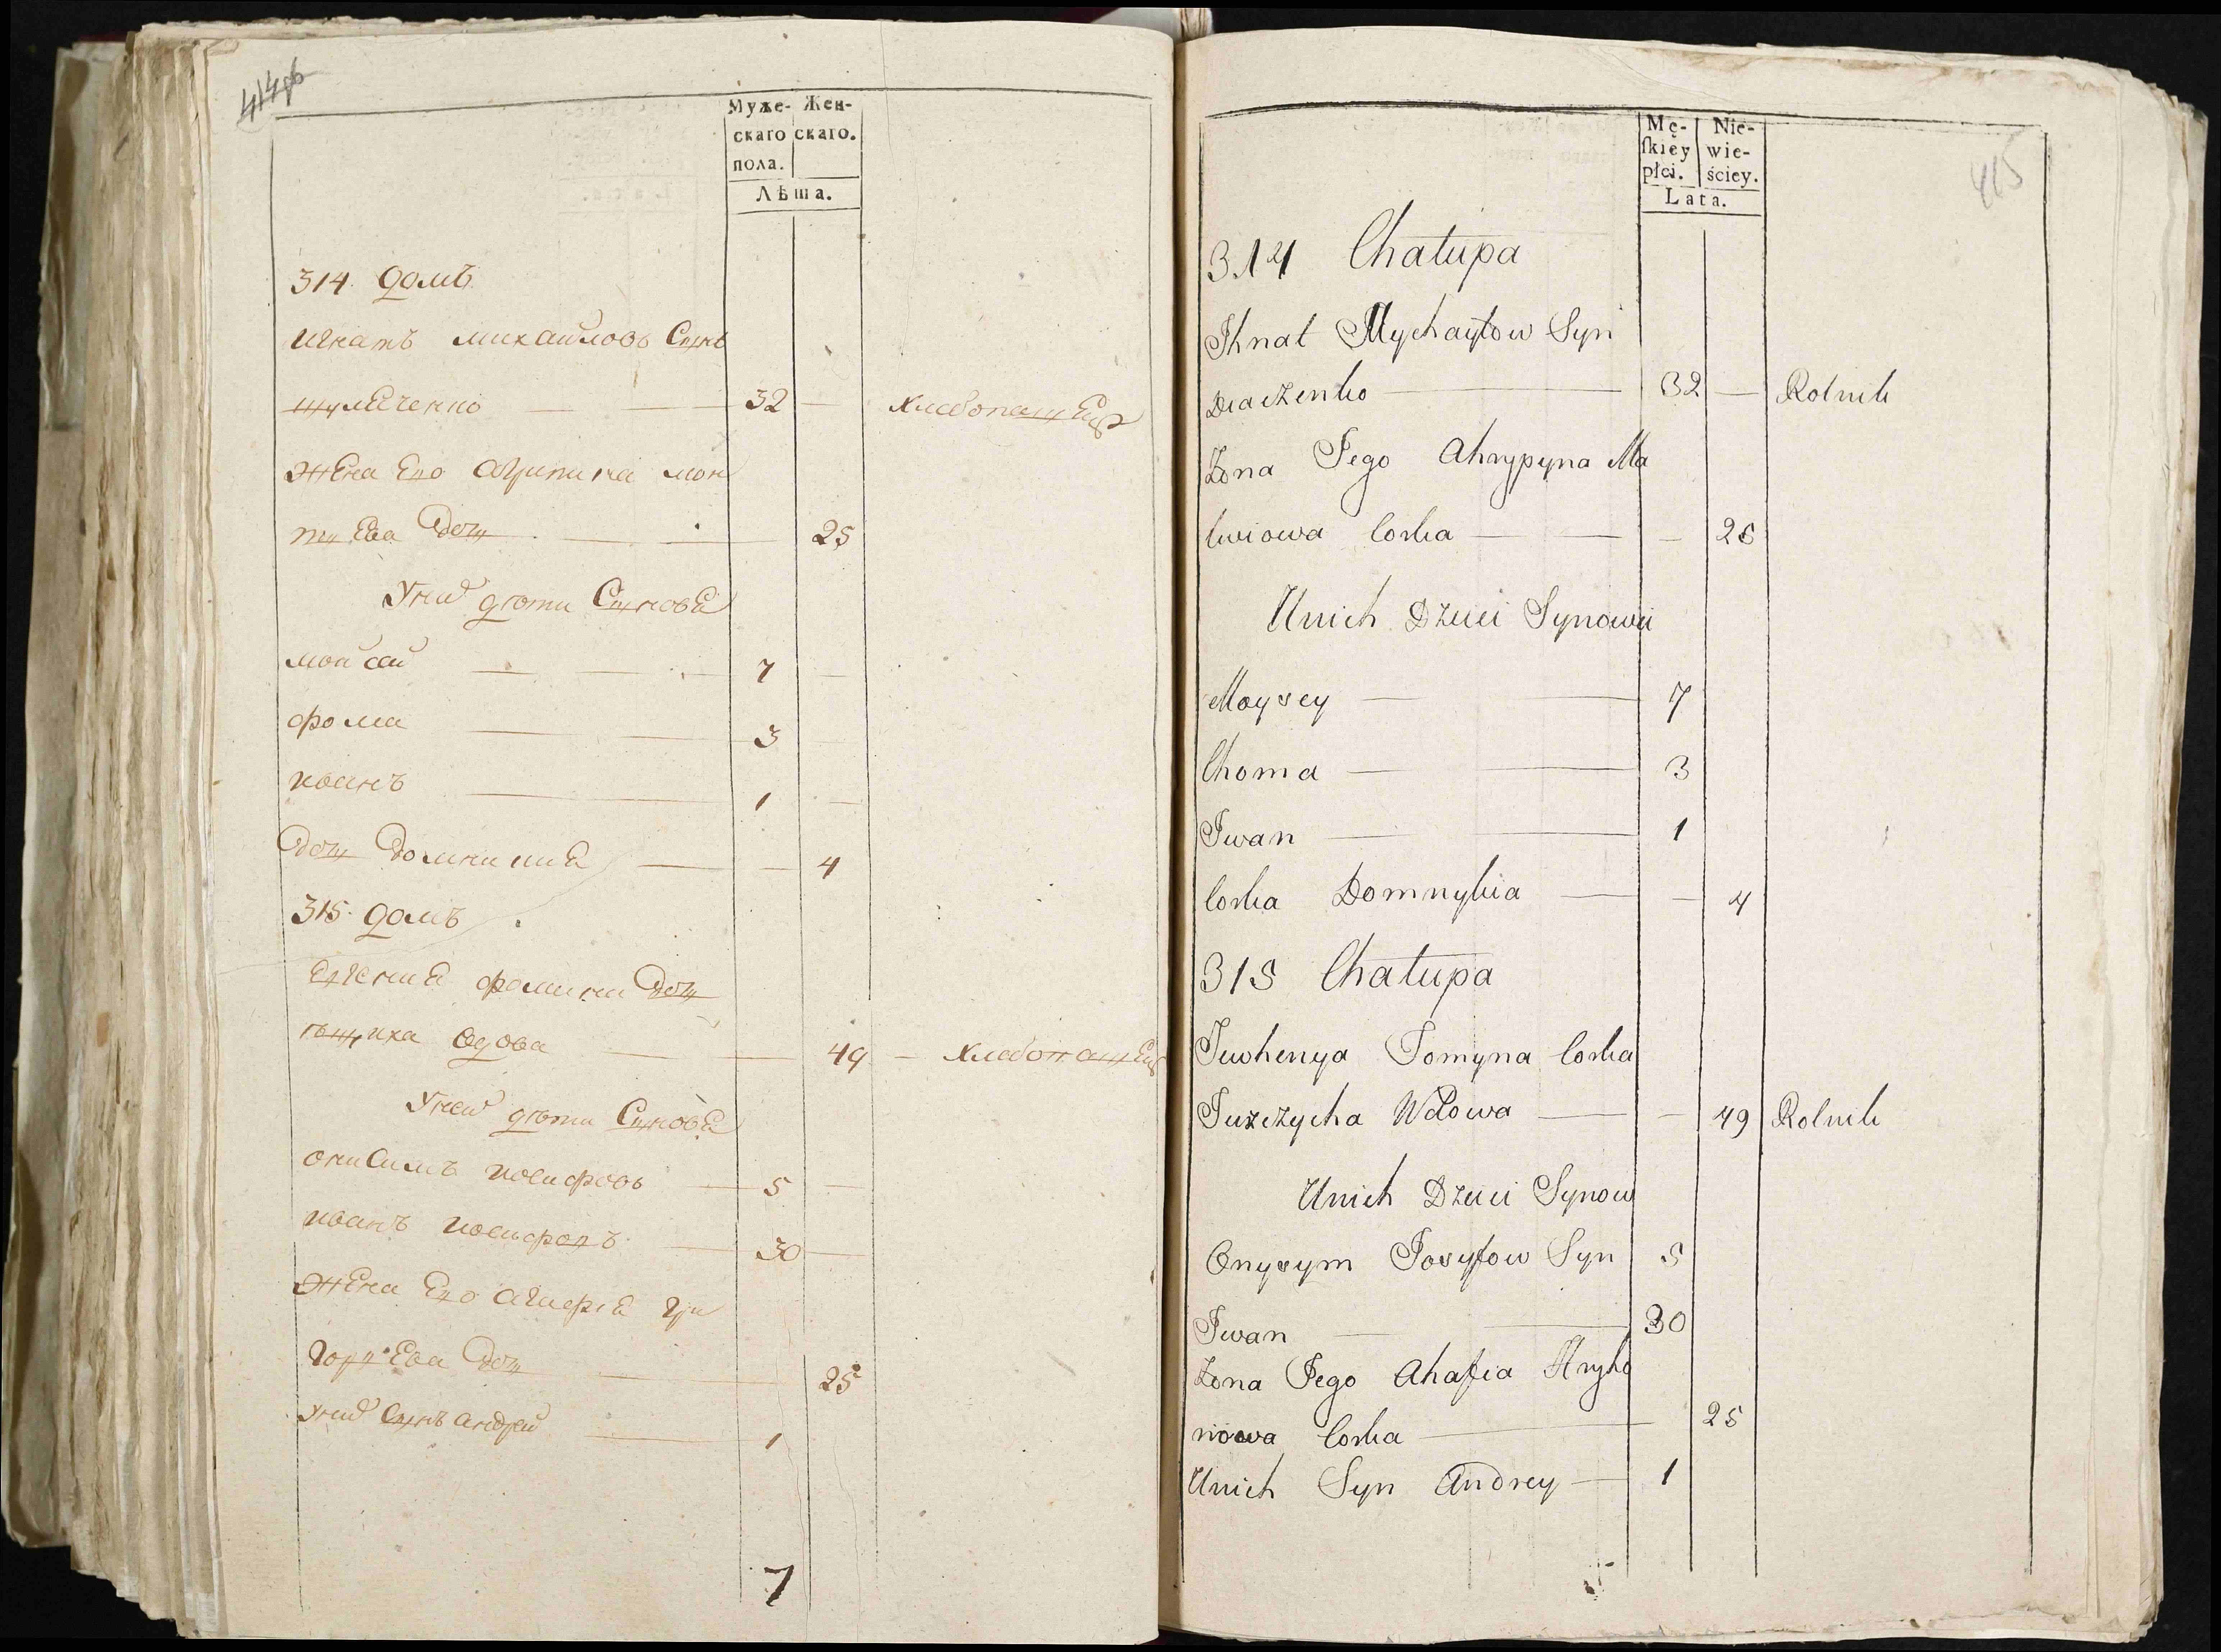 414об
Муже- Жен-
скаго скаго.
пола.
Лѣта.
314. домъ
игнатъ михайловъ Сынъ
32 — хлебопашец
жена Его агрипина мон
тиева дочь — 25
У них дети Сыновья
мойсей — 7
фома — 3
иванъ — 1
дочь домникия — 4
315. домъ
евгения фомина дочь
вдова — 49 — хлебопашец
У неи дети Сыновья
онисимъ иосифовъ — 5
иванъ иосифовъ — 30
жена Его агафия гри
горьева дочь — 25
У них Сынъ андрей — 1
7
415
Mę- Nie-
ſkiey wie-
płci. ściey.
Lata.
314 Chałupa
Ihnat Mychayłow Syn
Diaczenko — 32 — Rolnik
Żona Jego Ahrypyna Ma
kwiowa Corka — 25
Unich Dzieci Synowie
Moysey — 7
Choma — 3
Iwan — 1
Corka Domnykia — 4
315 Chałupa
Iwhenya Tomyna Corka
Wdowa — 49 Rolnik
Unich Dzieci Synow
Onysym Josyfow Syn 5
Iwan — 30
Żona Jego Ahafia Hryho
riowa Corka — 25
Unich Syn Andrey — 1